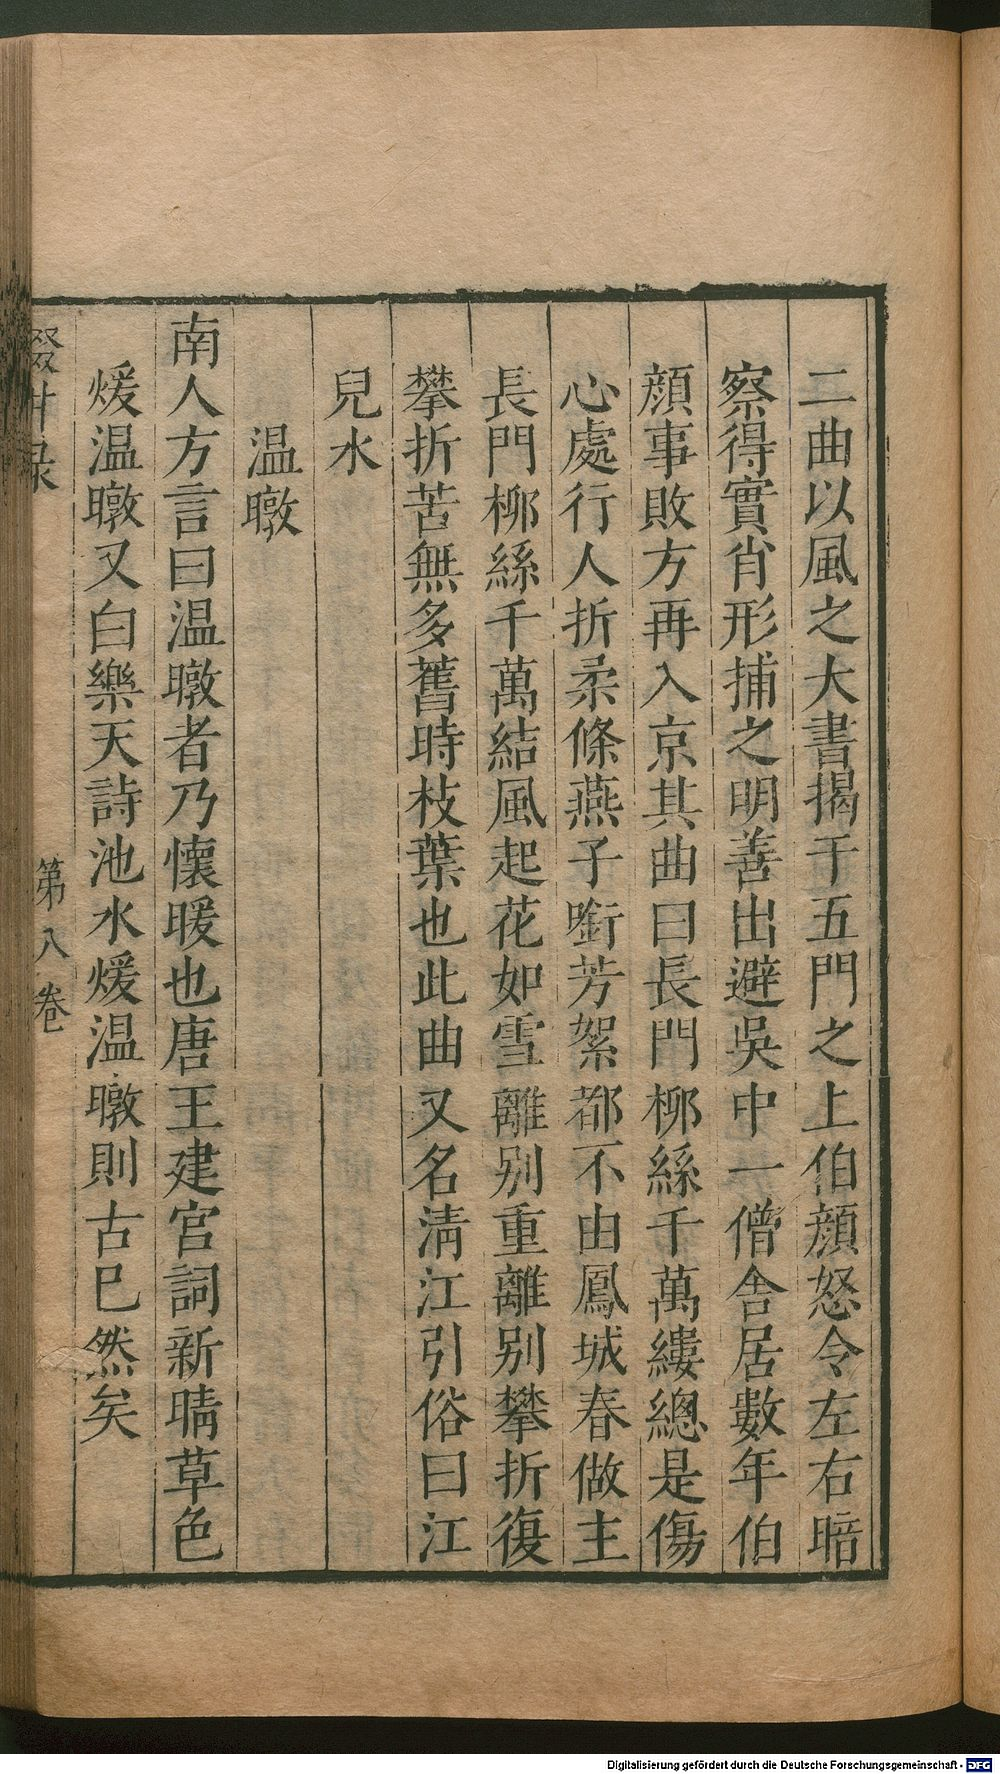 二曲以風之大書揭于五門之上伯顔怒令左右暗
察得實肖形捕之明善出避吳中一僧舍居數年伯
顔事敗方再入京其曲曰長門柳絲千萬縷總是傷
心處行人折柔條燕子銜芳絮都不由鳳城春做主
長門柳絲千萬結風起花如雪離别重離别攀折復
攀折苦無多舊時枝葉也此曲又名淸江引俗曰江
兒水
温暾
南人方言曰温暾者乃懷暖也唐王建宮詞新晴草色
煖温暾又白樂天詩池水煖温暾則古巳然矣
輟耕录
第八卷
Digitalisierung gefördert durch die Deutsche Forschungsgemeinschaft - DFG